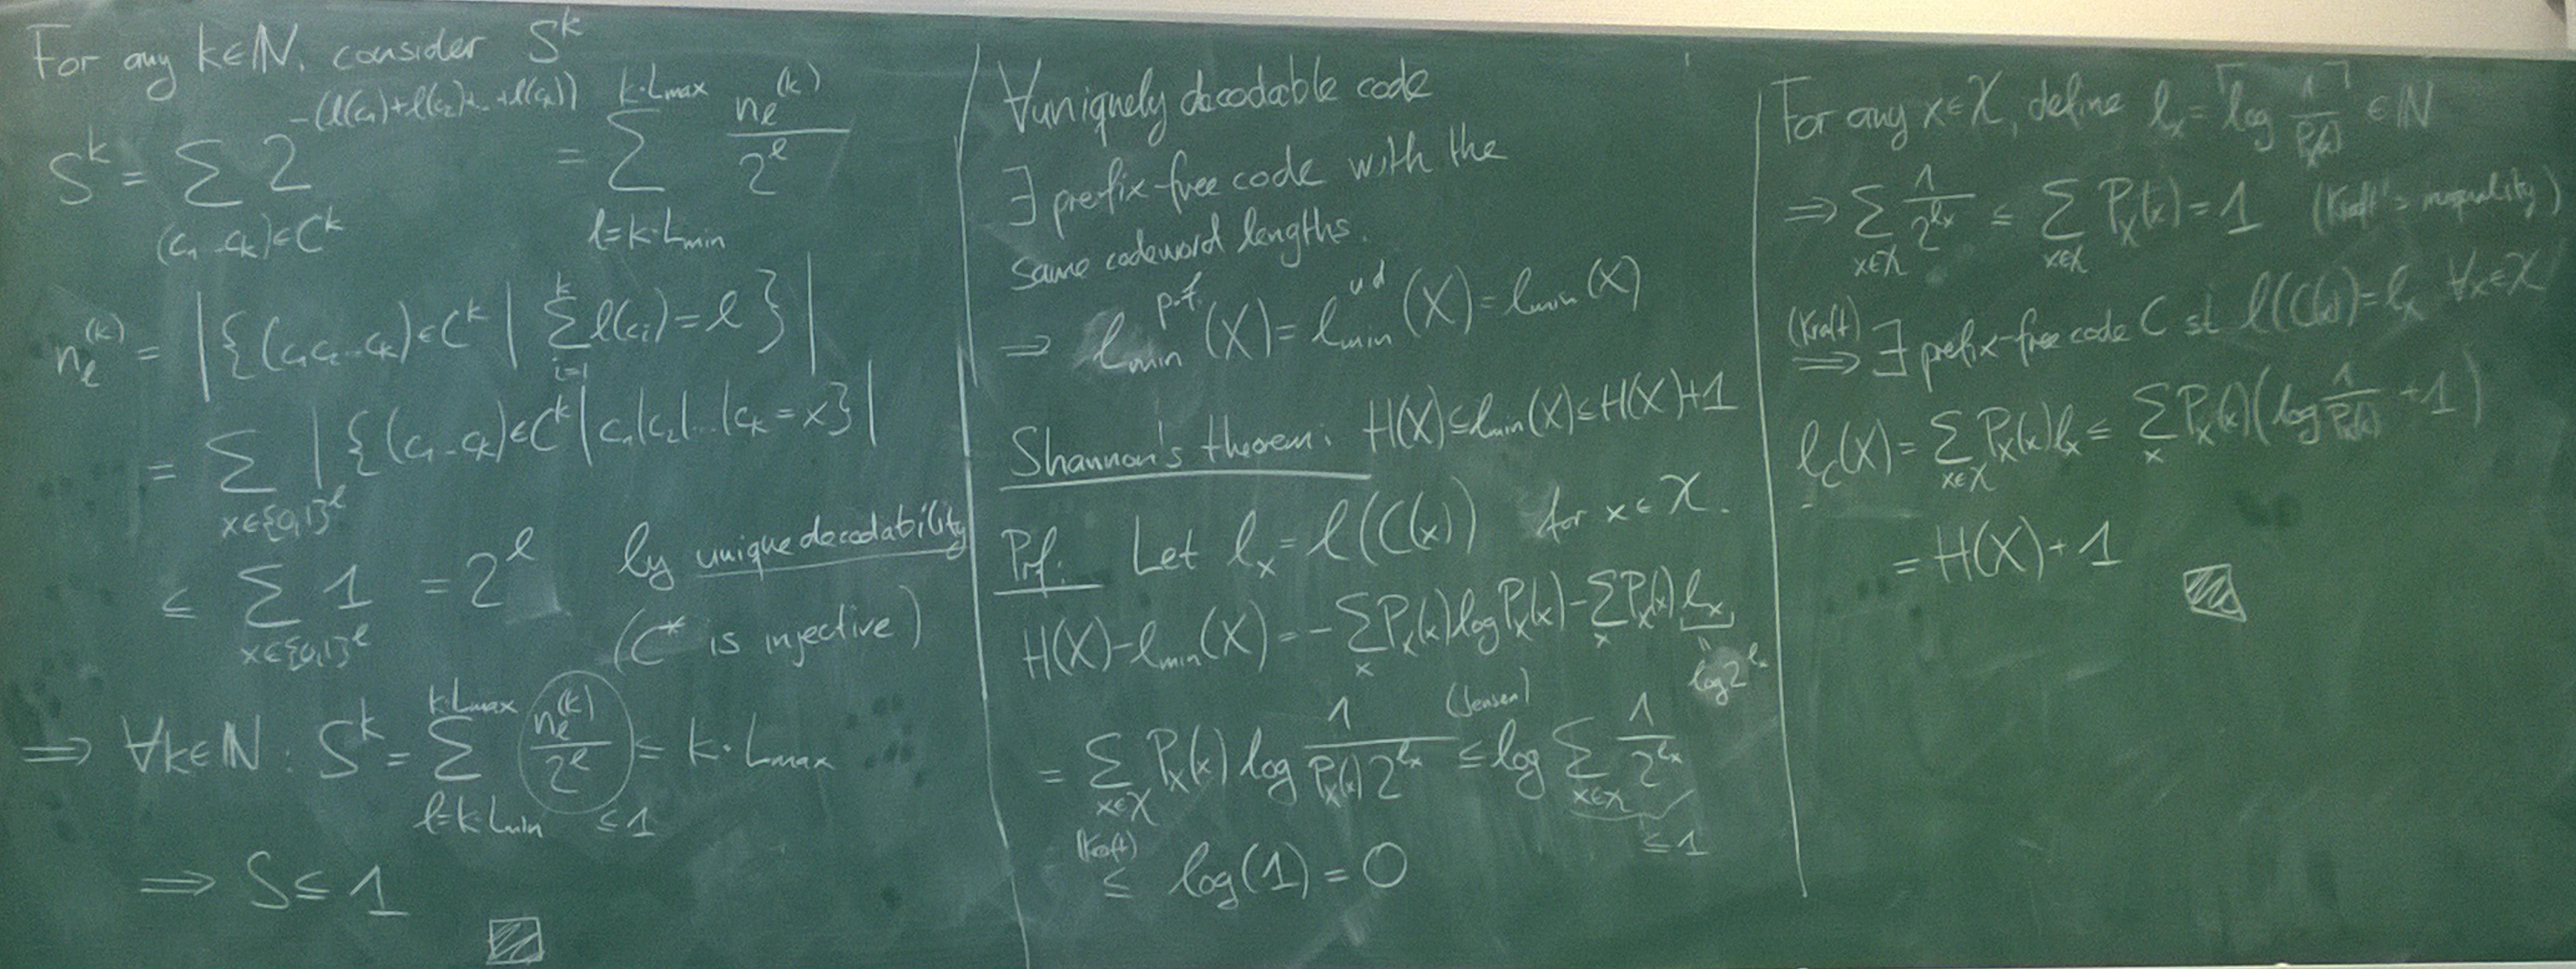 For any k∈ℕ, consider S^k
S^k = ∑_{(c₁…c_k)∈C^k} 2^{-(ℓ(c₁)+ℓ(c₂)+…+ℓ(c_k))} = ∑_{ℓ=k·L_min}^{k·L_max} n_ℓ^{(k)} / 2^ℓ
n_ℓ^{(k)} = |{(c₁c₂…c_k)∈C^k | ∑_{i=1}^{k} ℓ(c_i) = ℓ}|
= ∑_{x∈{0,1}^ℓ} |{(c₁…c_k)∈C^k | c₁|c₂|…|c_k = x}|
≤ ∑_{x∈{0,1}^ℓ} 1 = 2^ℓ by unique decodability
(C* is injective)
⟹ ∀k∈ℕ : S^k = ∑_{ℓ=k·L_min}^{k·L_max} n_ℓ^{(k)} / 2^ℓ ≤ k·L_max
≤ 1
⟹ S ≤ 1
∀uniquely decodable code
∃ prefix-free code with the
same codeword lengths.
⟹ ℓ_min^{p.f.}(X) = ℓ_min^{ud}(X) = ℓ_min(X)
Shannon's theorem: H(X) ≤ ℓ_min(X) ≤ H(X)+1
Prf.: Let ℓ_x = ℓ(C(x)) for x∈𝒳.
H(X) − ℓ_min(X) = −∑_x P_X(x) log P_X(x) − ∑_x P_X(x) ℓ_x
= log 2^{ℓ_x}
= ∑_{x∈𝒳} P_X(x) log 1/(P_X(x) 2^{ℓ_x}) ≤ (Jensen) log ∑_{x∈𝒳} 1/2^{ℓ_x}
≤ 1
≤ (Kraft) log(1) = 0
For any x∈𝒳, define ℓ_x = ⌈log 1/P_X(x)⌉ ∈ ℕ
⟹ ∑_{x∈𝒳} 1/2^{ℓ_x} ≤ ∑_{x∈𝒳} P_X(x) = 1 (Kraft's inequality)
(Kraft) ⟹ ∃ prefix-free code C st ℓ(C(x)) = ℓ_x ∀x∈𝒳
ℓ_C(X) = ∑_{x∈𝒳} P_X(x) ℓ_x ≤ ∑_x P_X(x) (log 1/P_X(x) + 1)
= H(X) + 1